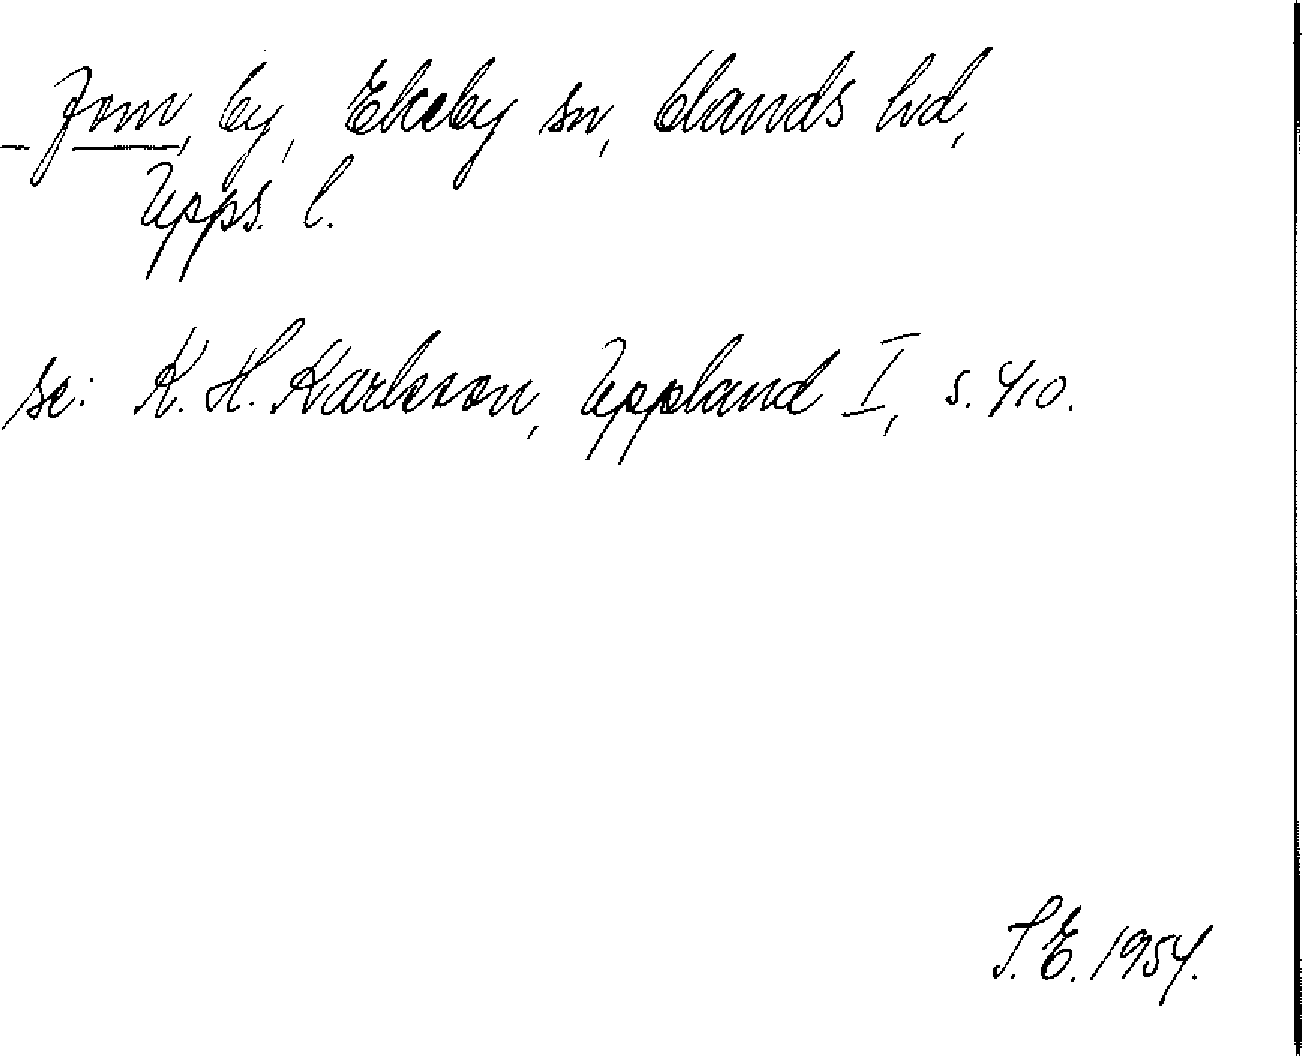 Jom, by, Ekeby sn, Olands hd,
Upps. l.
se: K. H. Karlsson, Uppland I, s. 410.
S.E. 1954.